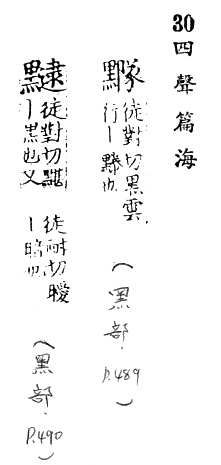 30 四聲篇海
徒對切黑雲
行丨也
(黑部.P.489)
徒對切黮
丨黑也又
徒耐切曖
丨暗也
(黑部.P.490)